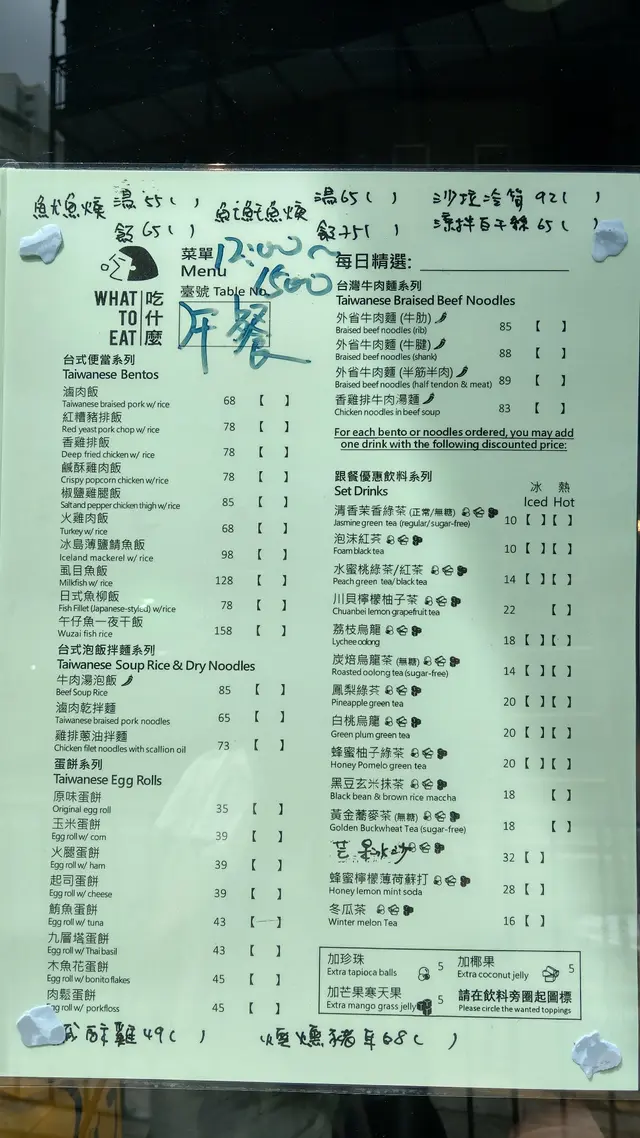 魷魚焿 湯55( )
飯65( )
湯65( )
飯75( )
沙拉冷筍 92( )
涼拌百干絲 65( )
WHAT TO EAT
吃什麼
菜單
Menu
臺號 Table No.
12:00~
1500
午餐
每日精選:
台式便當系列
Taiwanese Bentos
滷肉飯
Taiwanese braised pork w/rice 68 【 】
紅糟豬排飯
Red yeast pork chop w/rice 78 【 】
香雞排飯
Deep fried chicken w/ rice 78 【 】
鹹酥雞肉飯
Crispy popcorn chicken w/rice 78 【 】
椒鹽雞腿飯
Salt and pepper chicken thigh w/rice 85 【 】
火雞肉飯
Turkey w/ rice 68 【 】
冰島薄鹽鯖魚飯
Iceland mackerel w/ rice 98 【 】
虱目魚飯
Milkfish w/ rice 128 【 】
日式魚柳飯
Fish Fillet (Japanese-styled) w/rice 78 【 】
午仔魚一夜干飯
Wuzai fish rice 158 【 】
台式泡飯拌麵系列
Taiwanese Soup Rice & Dry Noodles
牛肉湯泡飯
Beef Soup Rice 85 【 】
滷肉乾拌麵
Taiwanese braised pork noodles 65 【 】
雞排蔥油拌麵
Chicken filet noodles with scallion oil 73 【 】
蛋餅系列
Taiwanese Egg Rolls
原味蛋餅
Original egg roll 35 【 】
玉米蛋餅
Egg roll w/ corn 39 【 】
火腿蛋餅
Egg roll w/ ham 39 【 】
起司蛋餅
Egg roll w/ cheese 39 【 】
鮪魚蛋餅
Egg roll w/ tuna 43 【 】
九層塔蛋餅
Egg roll w/ Thai basil 43 【 】
木魚花蛋餅
Egg roll w/ bonito flakes 45 【 】
肉鬆蛋餅
Egg roll w/ porkfloss 45 【 】
台灣牛肉麵系列
Taiwanese Braised Beef Noodles
外省牛肉麵 (牛肋)
Braised beef noodles (rib) 85 【 】
外省牛肉麵 (牛腱)
Braised beef noodles (shank) 88 【 】
外省牛肉麵 (半筋半肉)
Braised beef noodles (half tendon & meat) 89 【 】
香雞排牛肉湯麵
Chicken noodles in beef soup 83 【 】
For each bento or noodles ordered, you may add
one drink with the following discounted price:
跟餐優惠飲料系列
Set Drinks
冰 熱
Iced Hot
清香茉香綠茶 (正常/無糖)
Jasmine green tea (regular/ sugar-free) 10 【 】【 】
泡沫紅茶
Foam black tea 10 【 】【 】
水蜜桃綠茶/紅茶
Peach green tea/ black tea 14 【 】【 】
川貝檸檬柚子茶
Chuanbei lemon grapefruit tea 22 【 】
荔枝烏龍
Lychee oolong 18 【 】【 】
炭焙烏龍茶 (無糖)
Roasted oolong tea (sugar-free) 14 【 】【 】
鳳梨綠茶
Pineapple green tea 20 【 】【 】
白桃烏龍
Green plum green tea 20 【 】【 】
蜂蜜柚子綠茶
Honey Pomelo green tea 20 【 】【 】
黑豆玄米抹茶
Black bean & brown rice maccha 18 【 】
黃金蕎麥茶 (無糖)
Golden Buckwheat Tea (sugar-free) 18 【 】
芒果冰沙 32 【 】
蜂蜜檸檬薄荷蘇打
Honey lemon mint soda 28 【 】
冬瓜茶
Winter melon Tea 16 【 】
加珍珠
Extra tapioca balls 5
加椰果
Extra coconut jelly 5
加芒果寒天果
Extra mango grass jelly 5
請在飲料旁圈起圖標
Please circle the wanted toppings
酥雞49( )
豬耳68( )